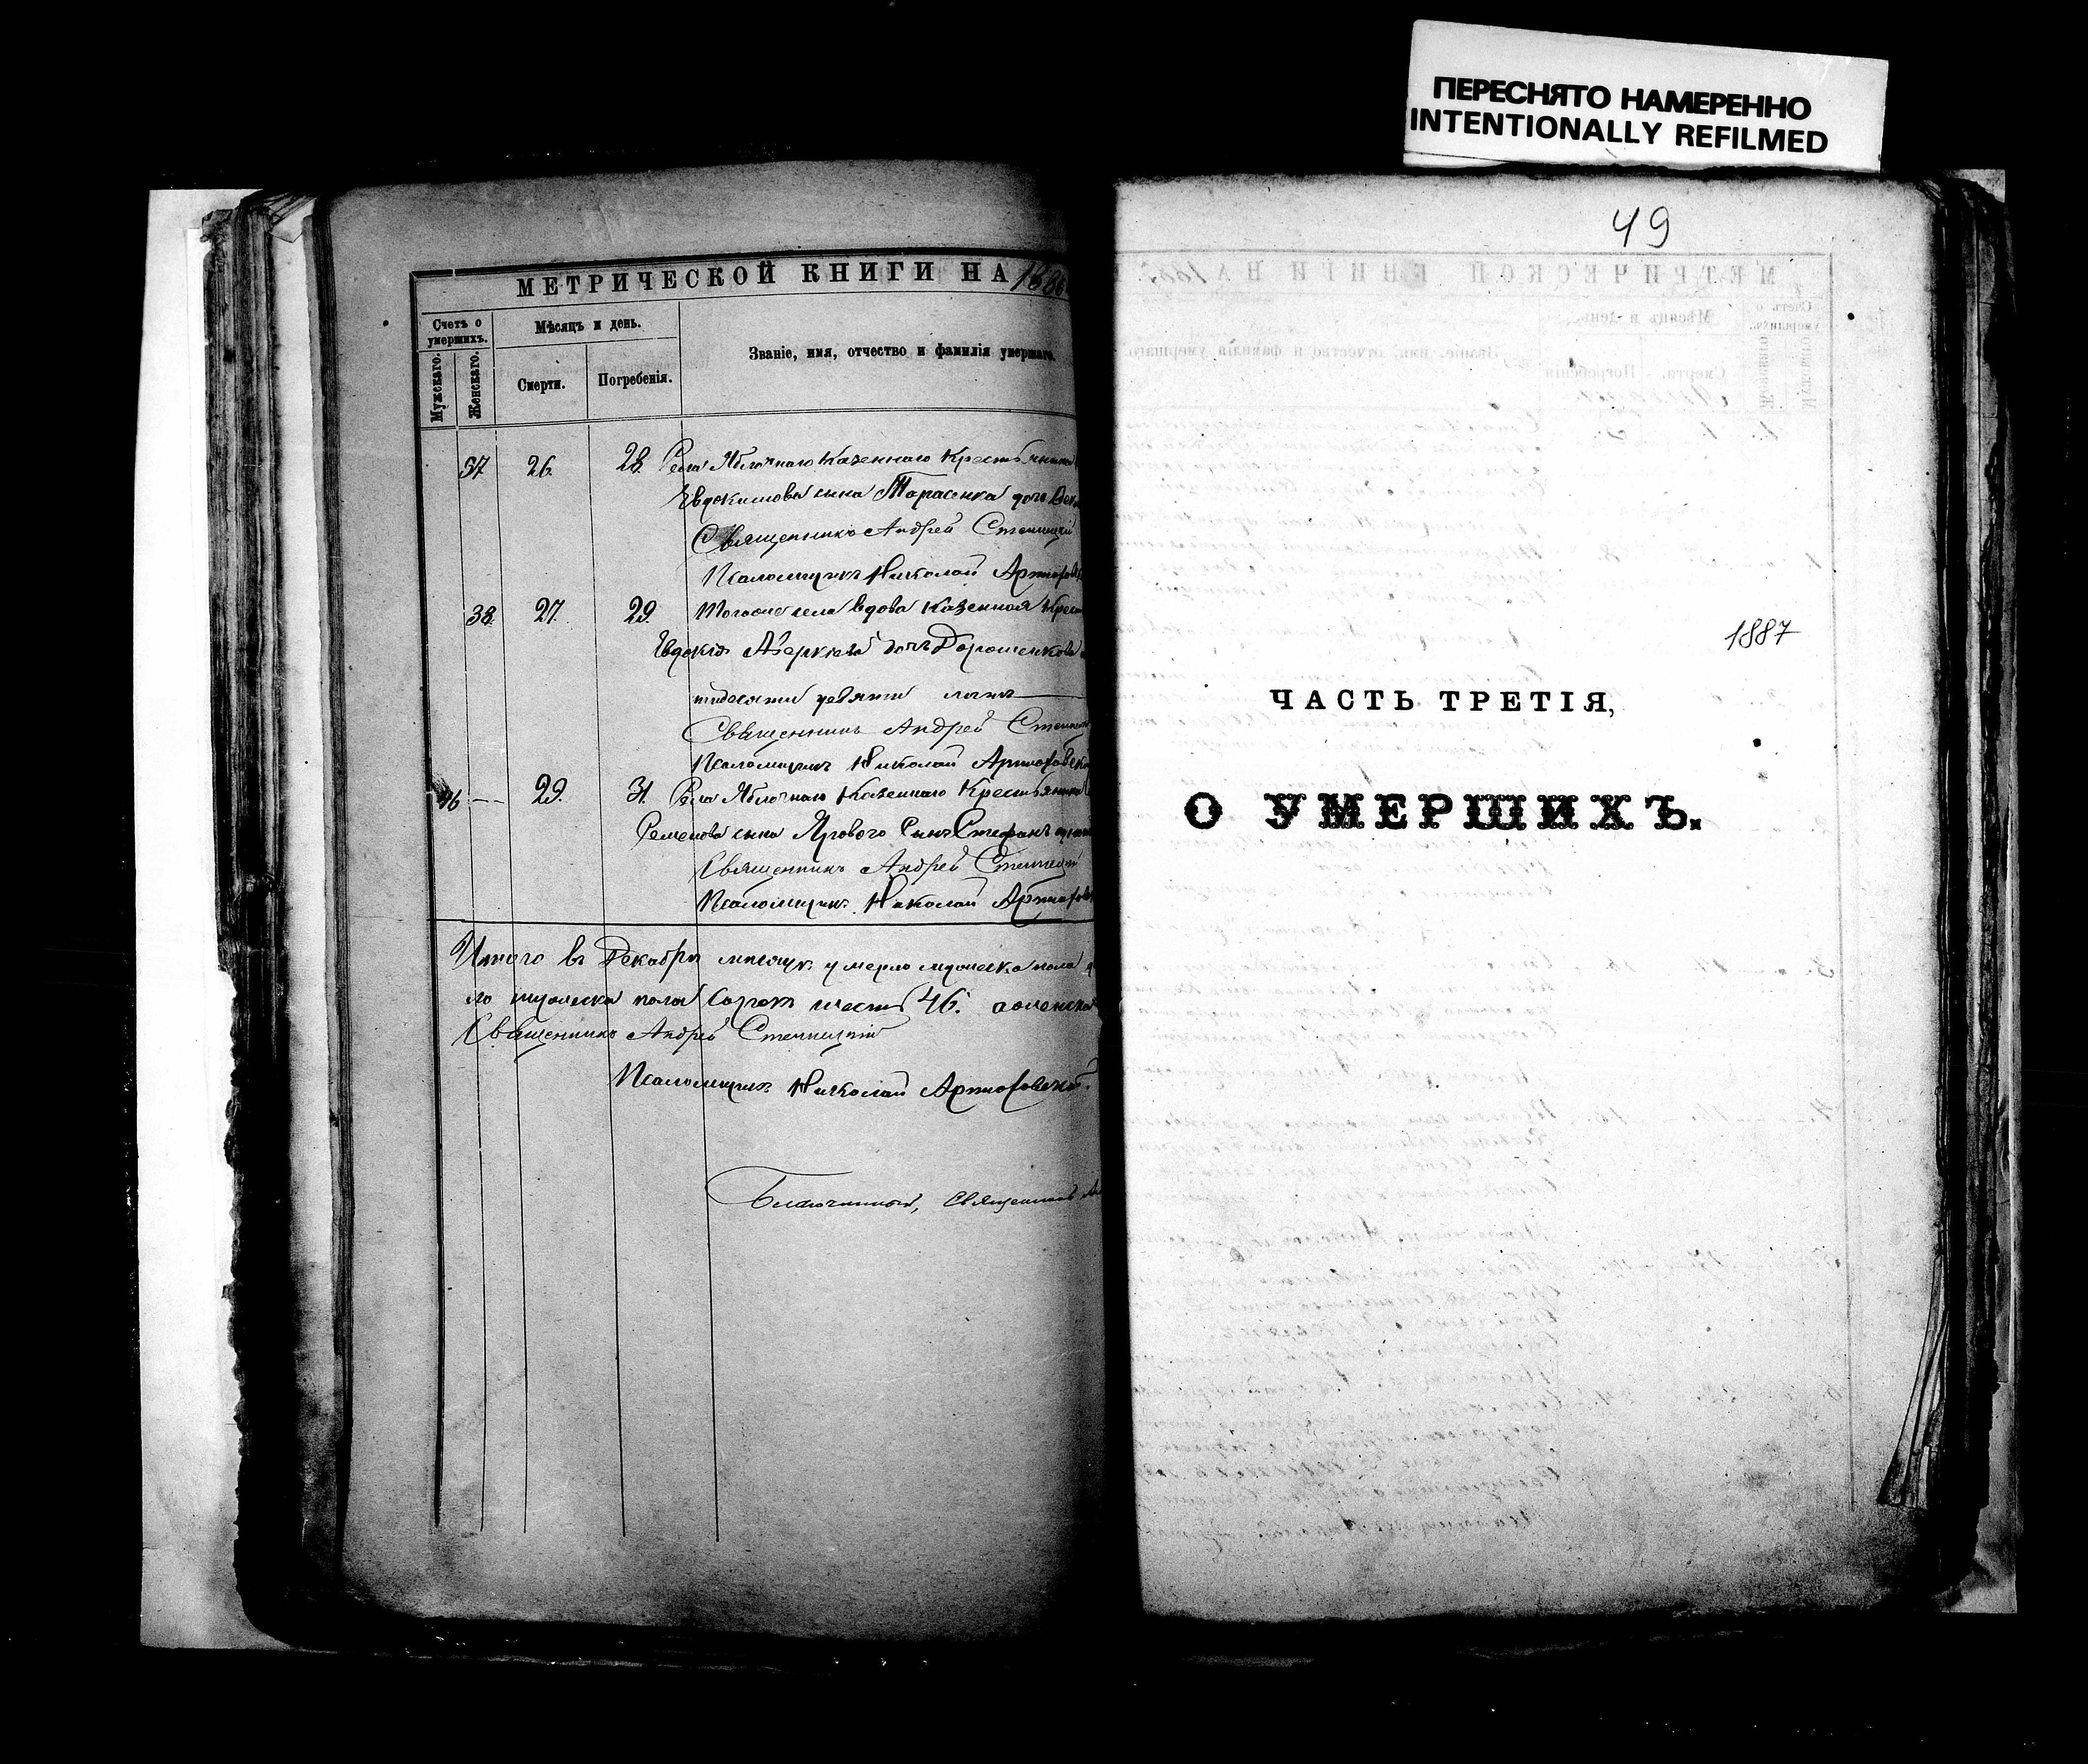 ПЕРЕСНЯТО НАМЕРЕННО
INTENTIONALLY REFILMED
МЕТРИЧЕСКОЙ КНИГИ НА 1886
Счетъ о умершихъ.
Мѣсяцъ и день.
Званіе, имя, отчество и фамилія умершаго.
Мужскаго.
Женскаго.
Смерти.
Погребенія.
37 26. 28. Села Яблочнаго Казеннаго Крестьянина
Евдокимова сына Тарасенка дочь
Священникъ Андрей Стеницкій
Псаломщикъ Николай Артюховс
38. 27. 29. Тогоже села вдова казенная Крест
Евдокія Аверкіева дочь Дорошенкова
тидесяти девяти лѣтъ
Священникъ Андрей
Псаломщикъ Николай Артюховск
46 — 29. 31. Села Яблочнаго Казеннаго Крестьянина
Семенова сына Ярового Сынъ Стефанъ
Священникъ Андрей Стеницкій
Псаломщикъ Николай Артюхов
Итого въ Декабрѣ мѣсяцѣ умерло мужеска пола
го мужеска пола Сорокъ шесть 46. а женска
Священникъ Андрей Стеницкій
Псаломщикъ Николай Артюховскій.
Благочинный, Священникъ
49
1887
ЧАСТЬ ТРЕТІЯ,
О УМЕРШИХЪ.